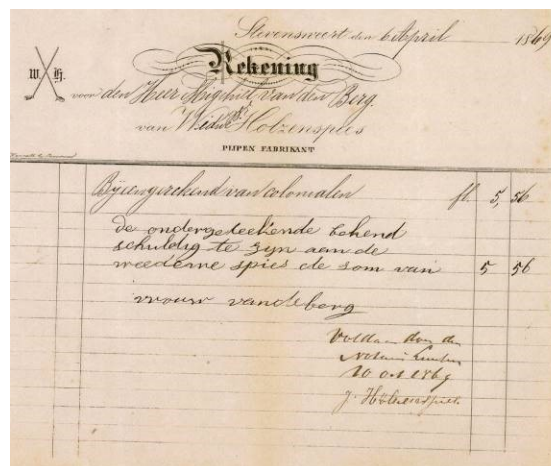 Stevensweert den 6 April 1869
Rekening
W. H.
voor den Heer van den Berg.
van Wedwe Holzenspies
PIJPEN FABRIKANT
Bijeengerekend van colonialen fl. 5, 56
de ondergeteekende bekend
schuldig te zyn aem de
weedewe spies de som van 5 56
vrouw vandeberg
Voldaan door den
Notaris
10 oct 1869
J. Holzenspies